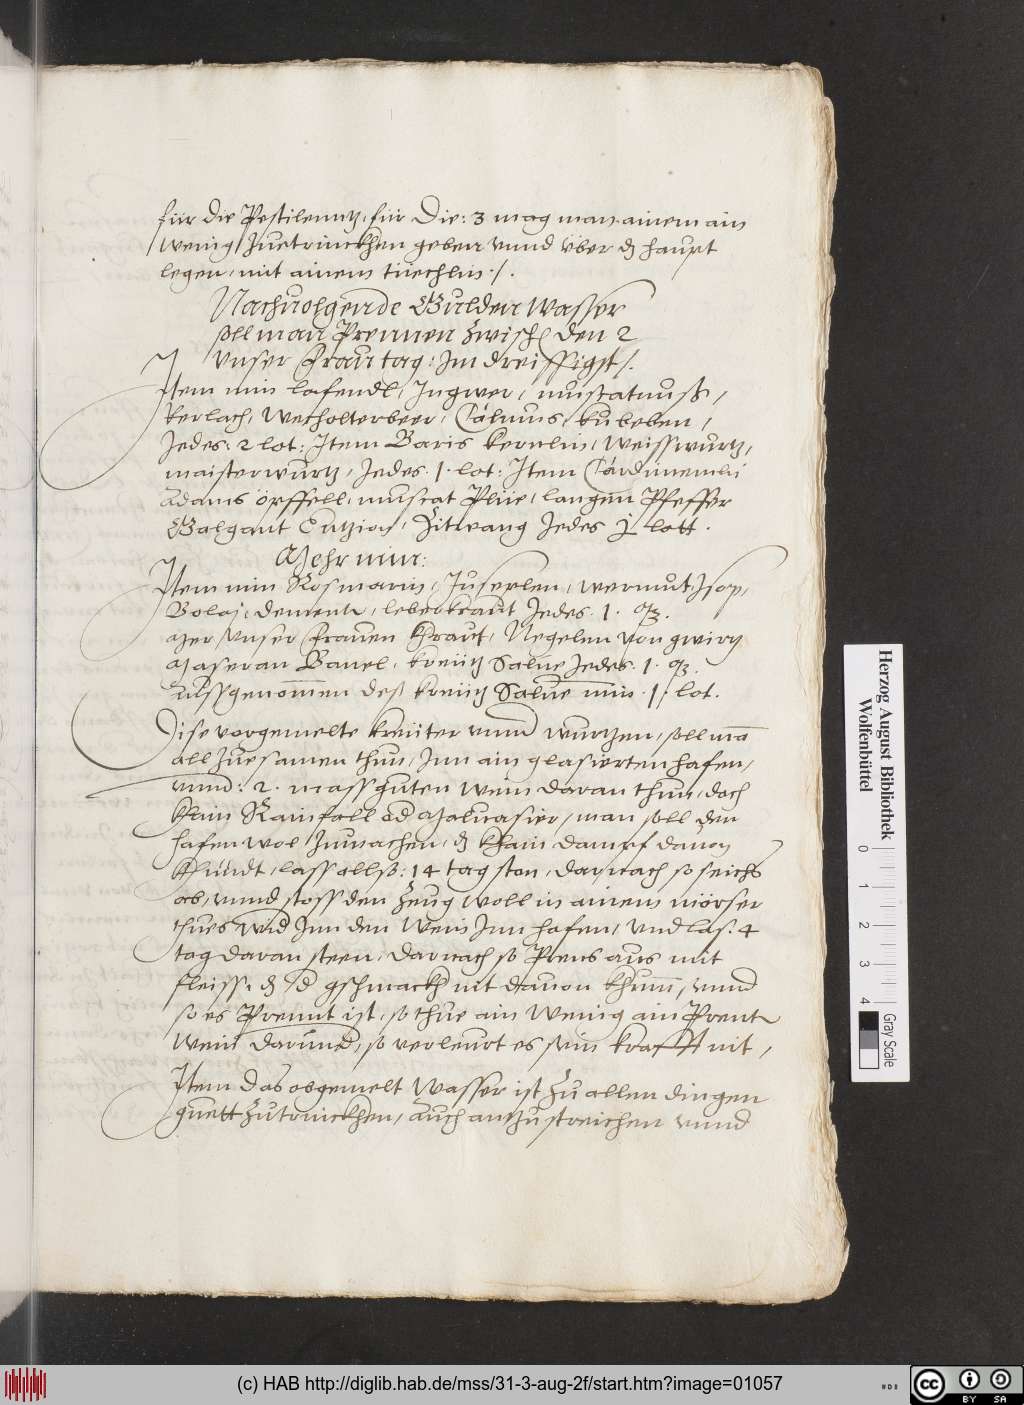 für die Pestilenntz, für Die: 3 mag man ainem ain
wenig Zuetrinckhen geben vnnd über dz haupt
legen, mit ainem tüechlin ./.
Nachuolgende Gulden Wasser
soll man Prennen Zwisch den 2
vnser Frauen tag: Im dreissigst /.
Item nim lafendl, Ingwer, muscatnuß,
Kerlach, Wecholterbeer, Cálmus, kubeben,
Jedes: 2 lot: Item Baris kernlin, Weisswurtz,
maisterwurtz, Jedes. 1. lot: Item Cardimemlj
Adams örpffell, muscat Plüe, langen Pfeffer
Galgant Entzion, Zitwang Jedes j lott.
Mehr nim:
Item nim Rosmarin, Juseplen, wermut, Isop,
Bolaj, dement, leberkraut Jedes. 1.
Mer vnser frauen Kraut, Negelen von gwirtz
Maseran Bauel, kreütz Salue Jedes. 1.
Aussgenommen deß kreütz Salue nim .1. lot.
Dise vorgemelte kreüter vnnd wurtzen, soll man
all Zuesamen thun, Inn ain glasierten hafen,
vnnd: 2. mass guten wein daran thun, doch
khain Rainfall od Maluasier, man soll den
hafen wol Zumachen, dz khain dampf dauon
khündt, lass allso: 14 tag ston, darnach so seichs
ab, vnnd stoss den Zeug woll in ainem mörser
thues wid Inn den wein Inn hafen, vnd las. 4
tag daran steen, darnach so Prens aus mit
fleiss. dz d gschmackh nit dauon khum, vnnd
so es Prennt ist, so thue ain Wenig ain Prent
Wein darunder, so verleurt es sein krafft nit,
Item das obgemelt Wasser ist Zu allen dingen
guett Zutrinckhen, Auch antzustreichen vnnd
Herzog August Bibliothek
Wolfenbüttel
0 1 2 3 4
Gray Scale
(c) HAB http://diglib.hab.de/mss/31-3-aug-2f/start.htm?image=01057
HAB
cc BY SA